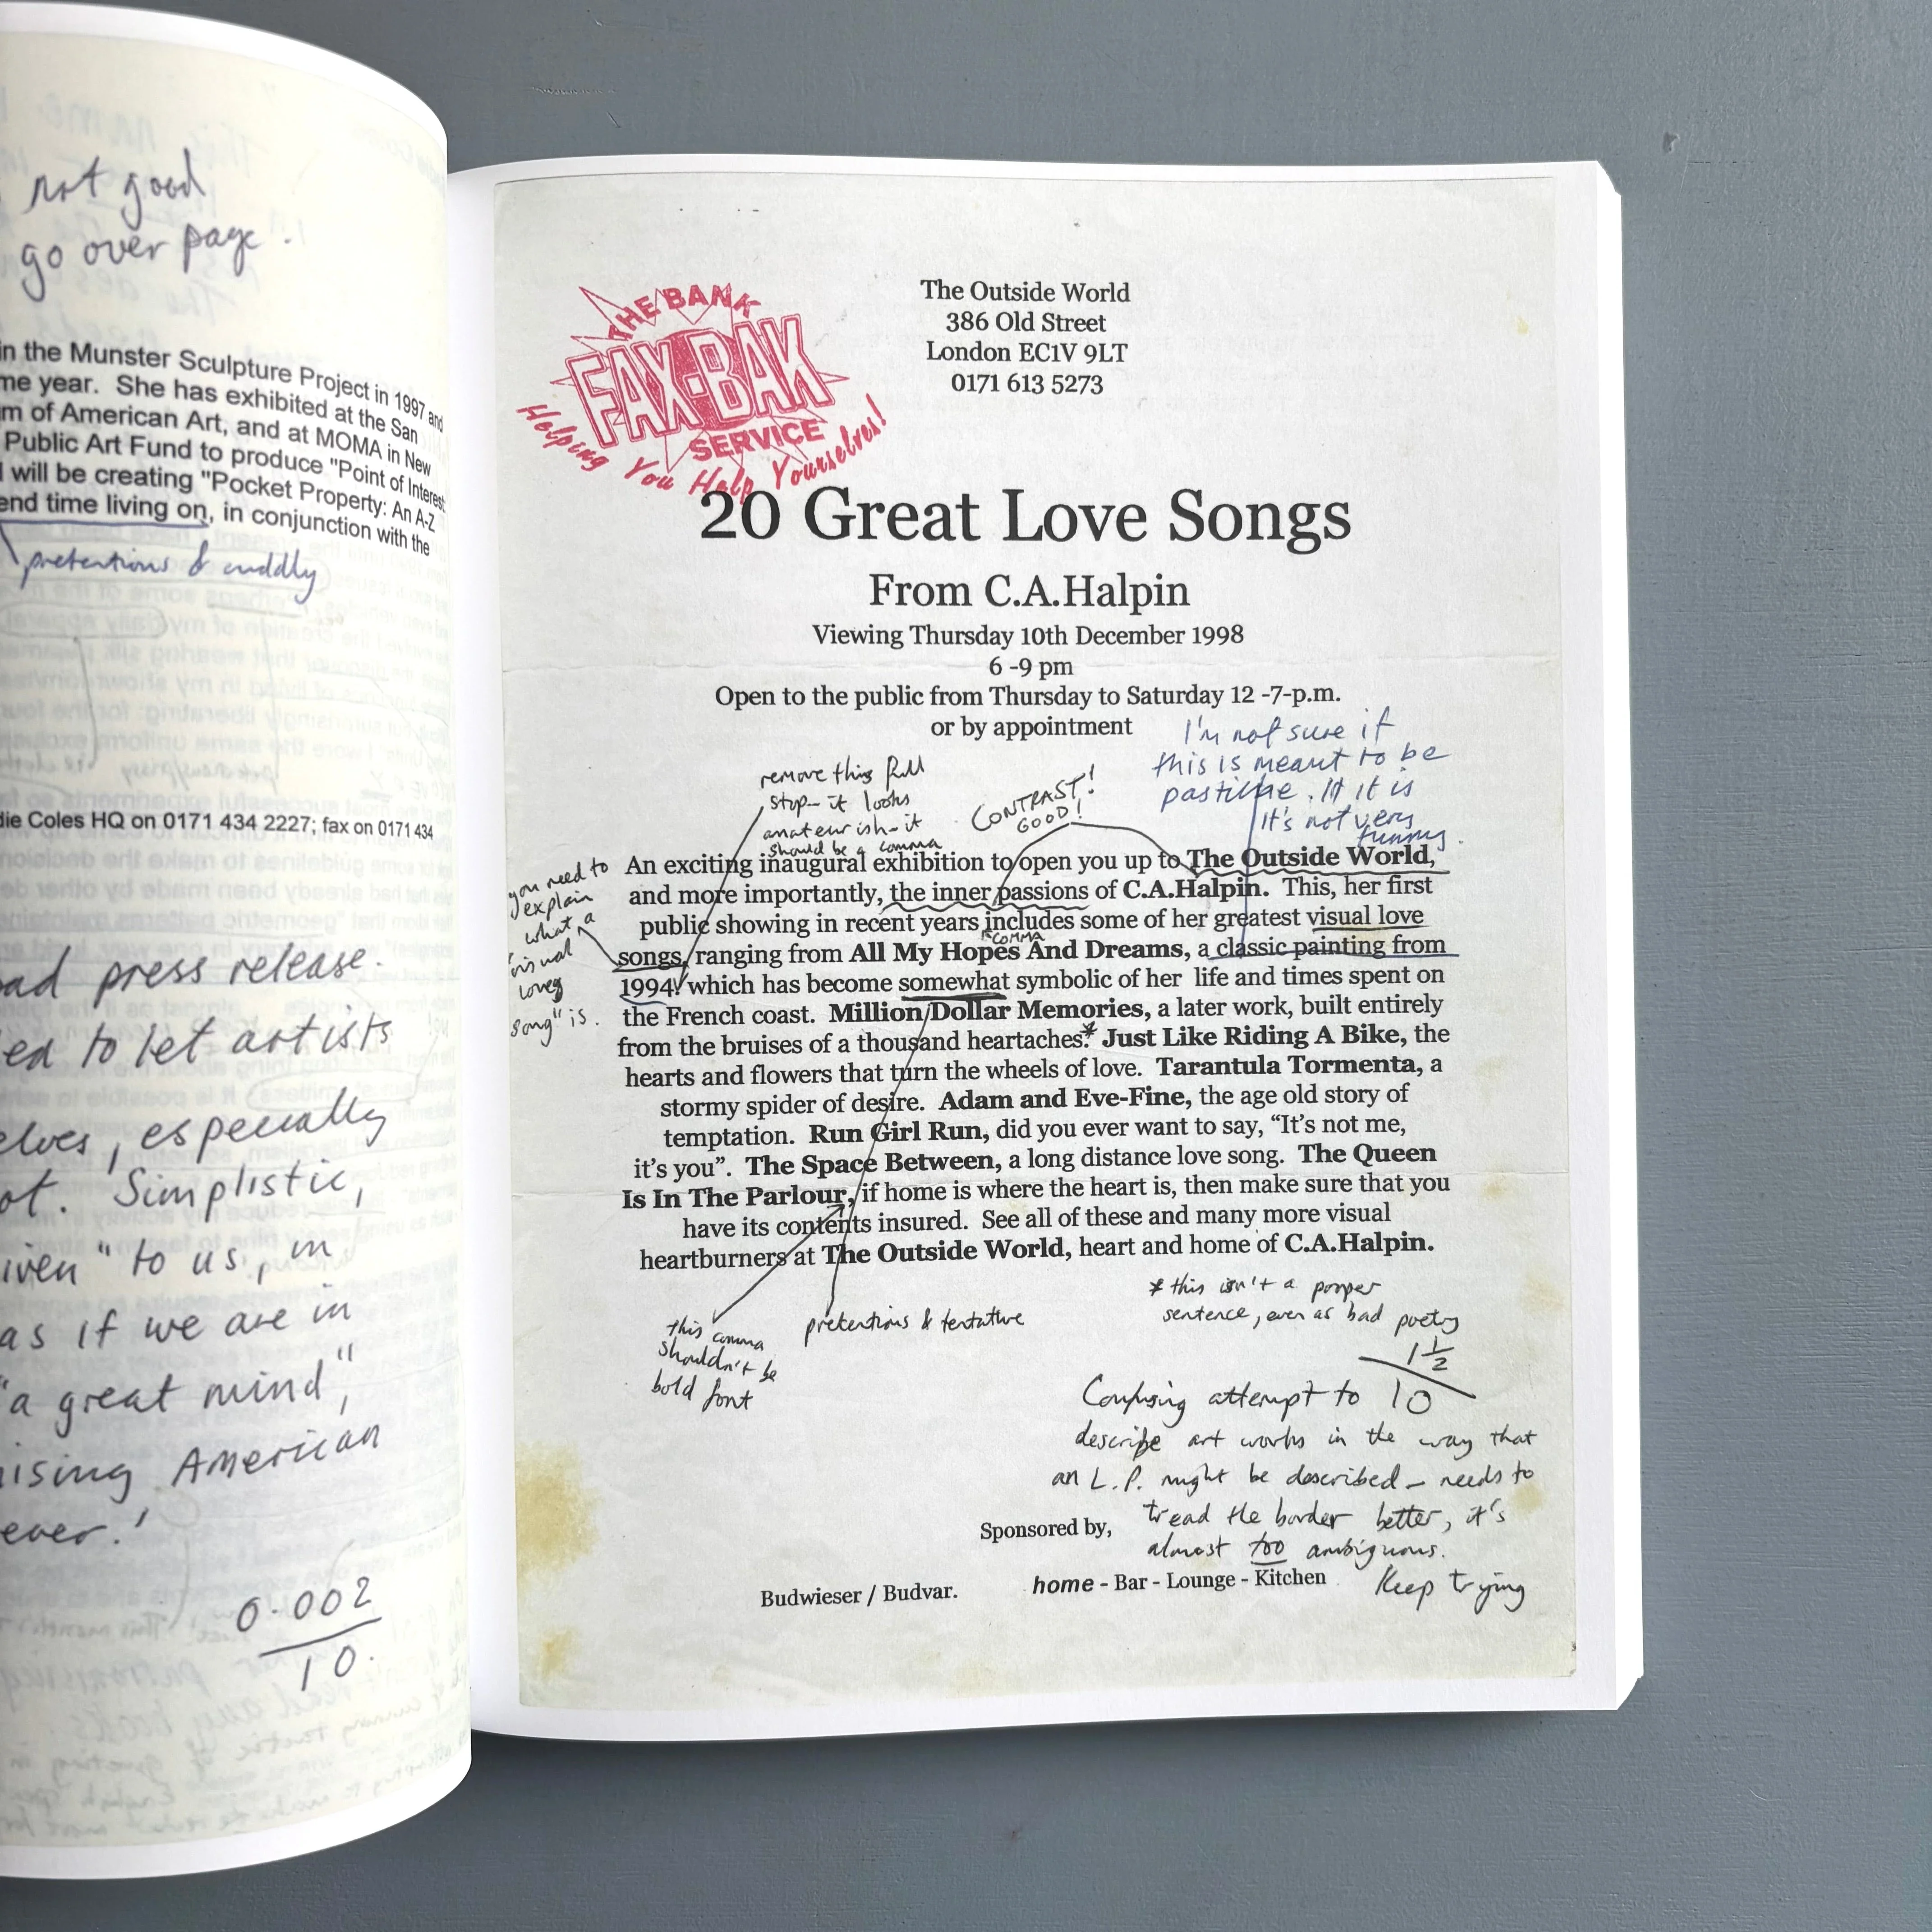 not good
go over page.
in the Munster Sculpture Project in 1997 and
me year. She has exhibited at the San
m of American Art, and at MOMA in New
Public Art Fund to produce "Point of Interest
will be creating "Pocket Property: An A-Z
end time living on, in conjunction with the
pretentions & cuddly
die Coles HQ on 0171 434 2227; fax on 0171 434
ad press release.
ed to let artists
elves, especially
ot. Simplistic,
iven" to us, in
as if we are in
"a great mind,"
ising American
ever.'
0.002
10.
THE BANK
FAX-BAK
SERVICE
Helping You Help Yourselves!
The Outside World
386 Old Street
London EC1V 9LT
0171 613 5273
20 Great Love Songs
From C.A.Halpin
Viewing Thursday 10th December 1998
6 -9 pm
Open to the public from Thursday to Saturday 12 -7-p.m.
or by appointment
I'm not sure if
this is meant to be
pastiche. If it is
it's not very
funny.
remove this full
stop - it looks
amateurish - it
should be a comma
CONTRAST!
GOOD!
you need to
explain
what a
"visual
love
song" is.
An exciting inaugural exhibition to open you up to The Outside World,
and more importantly, the inner passions of C.A.Halpin. This, her first
public showing in recent years includes some of her greatest visual love
COMMA
songs, ranging from All My Hopes And Dreams, a classic painting from
1994. which has become somewhat symbolic of her life and times spent on
the French coast. Million Dollar Memories, a later work, built entirely
from the bruises of a thousand heartaches.* Just Like Riding A Bike, the
hearts and flowers that turn the wheels of love. Tarantula Tormenta, a
stormy spider of desire. Adam and Eve-Fine, the age old story of
temptation. Run Girl Run, did you ever want to say, “It's not me,
it's you”. The Space Between, a long distance love song. The Queen
Is In The Parlour, if home is where the heart is, then make sure that you
have its contents insured. See all of these and many more visual
heartburners at The Outside World, heart and home of C.A.Halpin.
this comma
shouldn't be
bold font
pretentions & tentative
* this isn't a proper
sentence, even as bad poetry
1 1/2
10
Confusing attempt to
describe art works in the way that
an L.P. might be described - needs to
tread the border better, it's
almost too ambiguous.
Keep trying
Sponsored by,
Budwieser / Budvar.
home - Bar - Lounge - Kitchen